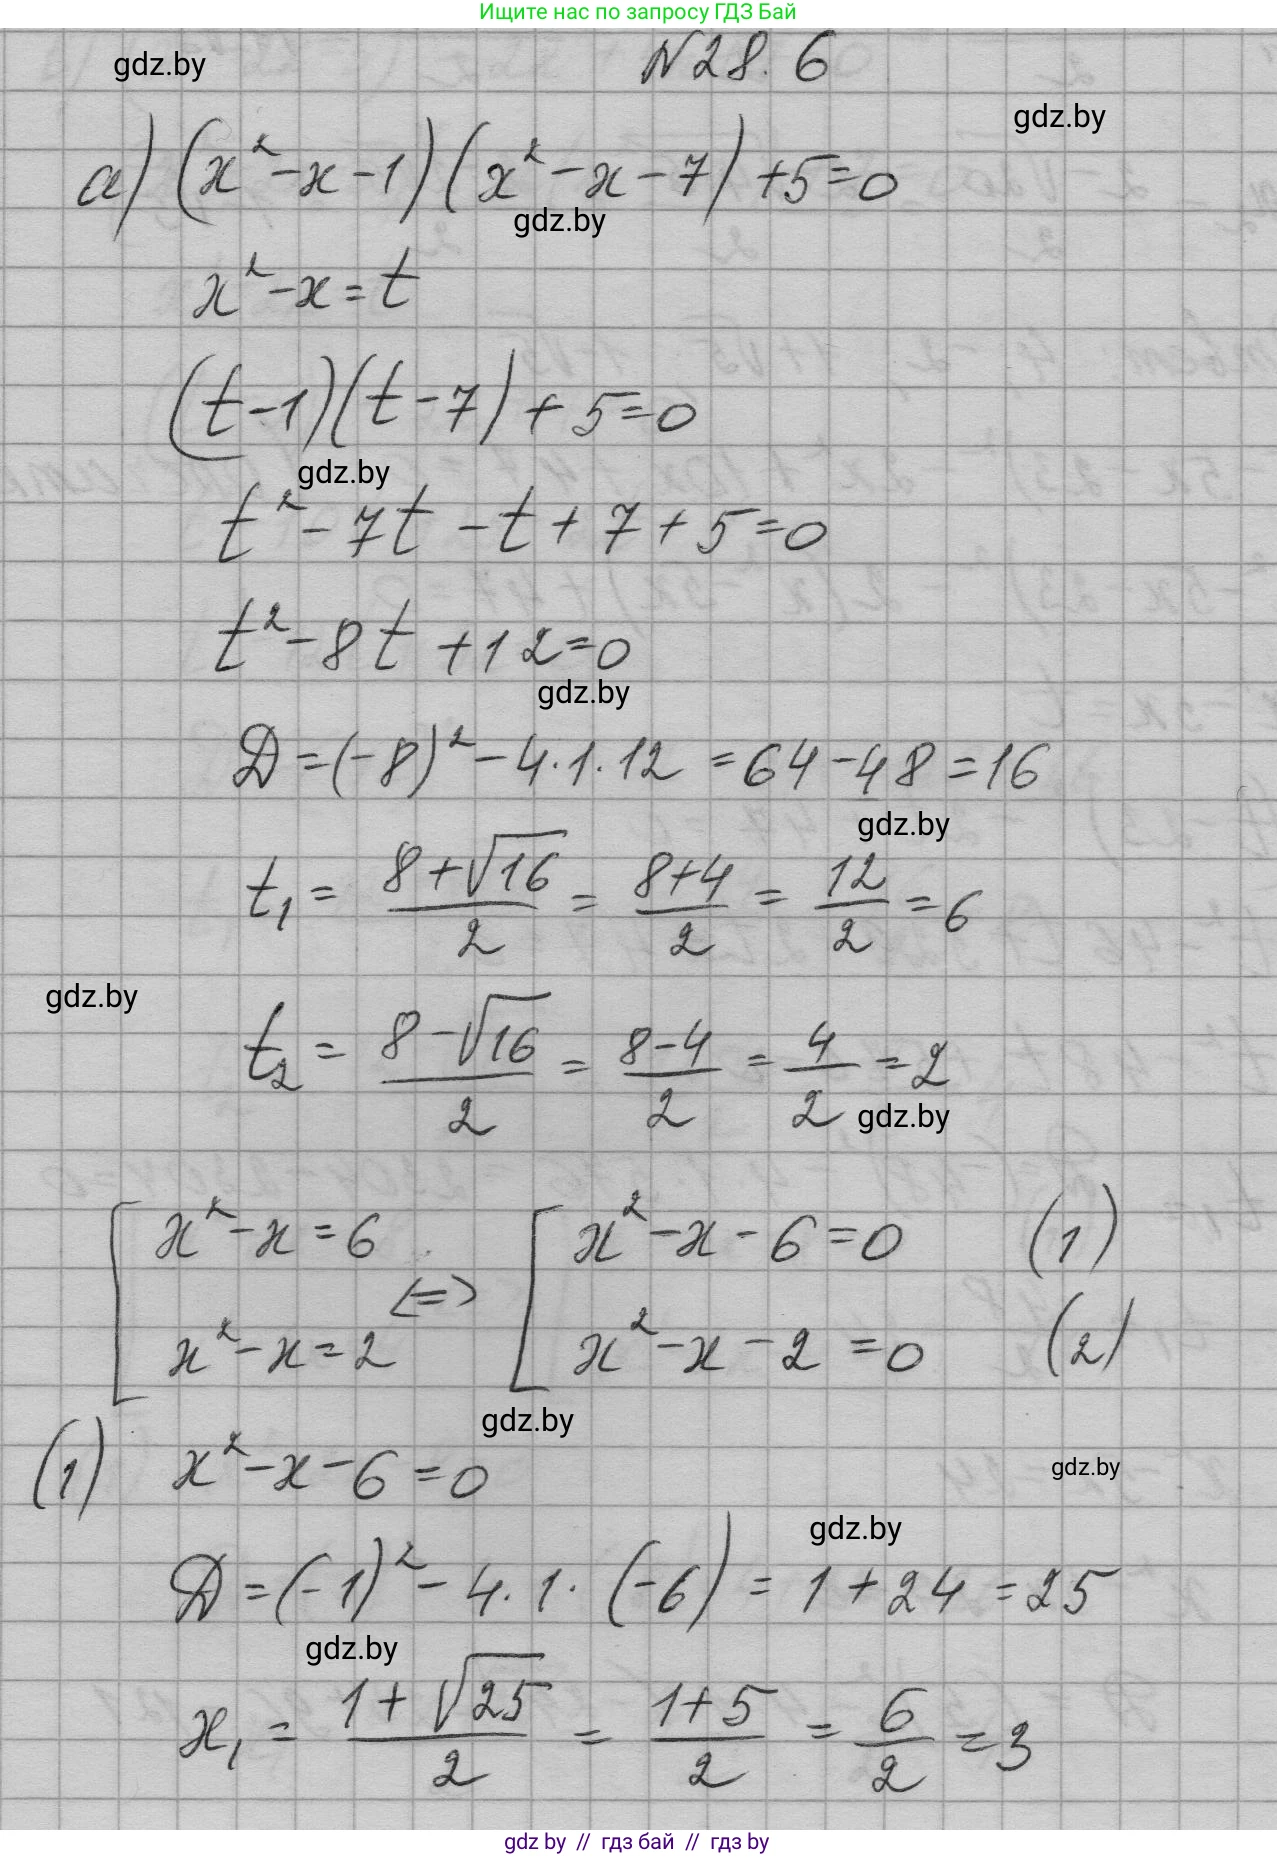 Ищите нас по запросу ГДЗ Бай
№28.6
gdz.by
gdz.by
а) (x²-x-1)(x²-x-7)+5=0
gdz.by
x²-x=t
(t-1)(t-7)+5=0
gdz.by
t²-7t-t+7+5=0
t²-8t+12=0
gdz.by
D=(-8)²-4·1·12=64-48=16
gdz.by
t₁ = (8+√16)/2 = (8+4)/2 = 12/2 = 6
gdz.by
t₂ = (8-√16)/2 = (8-4)/2 = 4/2 = 2
gdz.by
[ x²-x=6 <=> [ x²-x-6=0 (1)
x²-x=2 x²-x-2=0 (2)
gdz.by
(1) x²-x-6=0
gdz.by
gdz.by
D=(-1)²-4·1·(-6)=1+24=25
gdz.by
x₁ = (1+√25)/2 = (1+5)/2 = 6/2 = 3
gdz by // гдз бай // гдз by